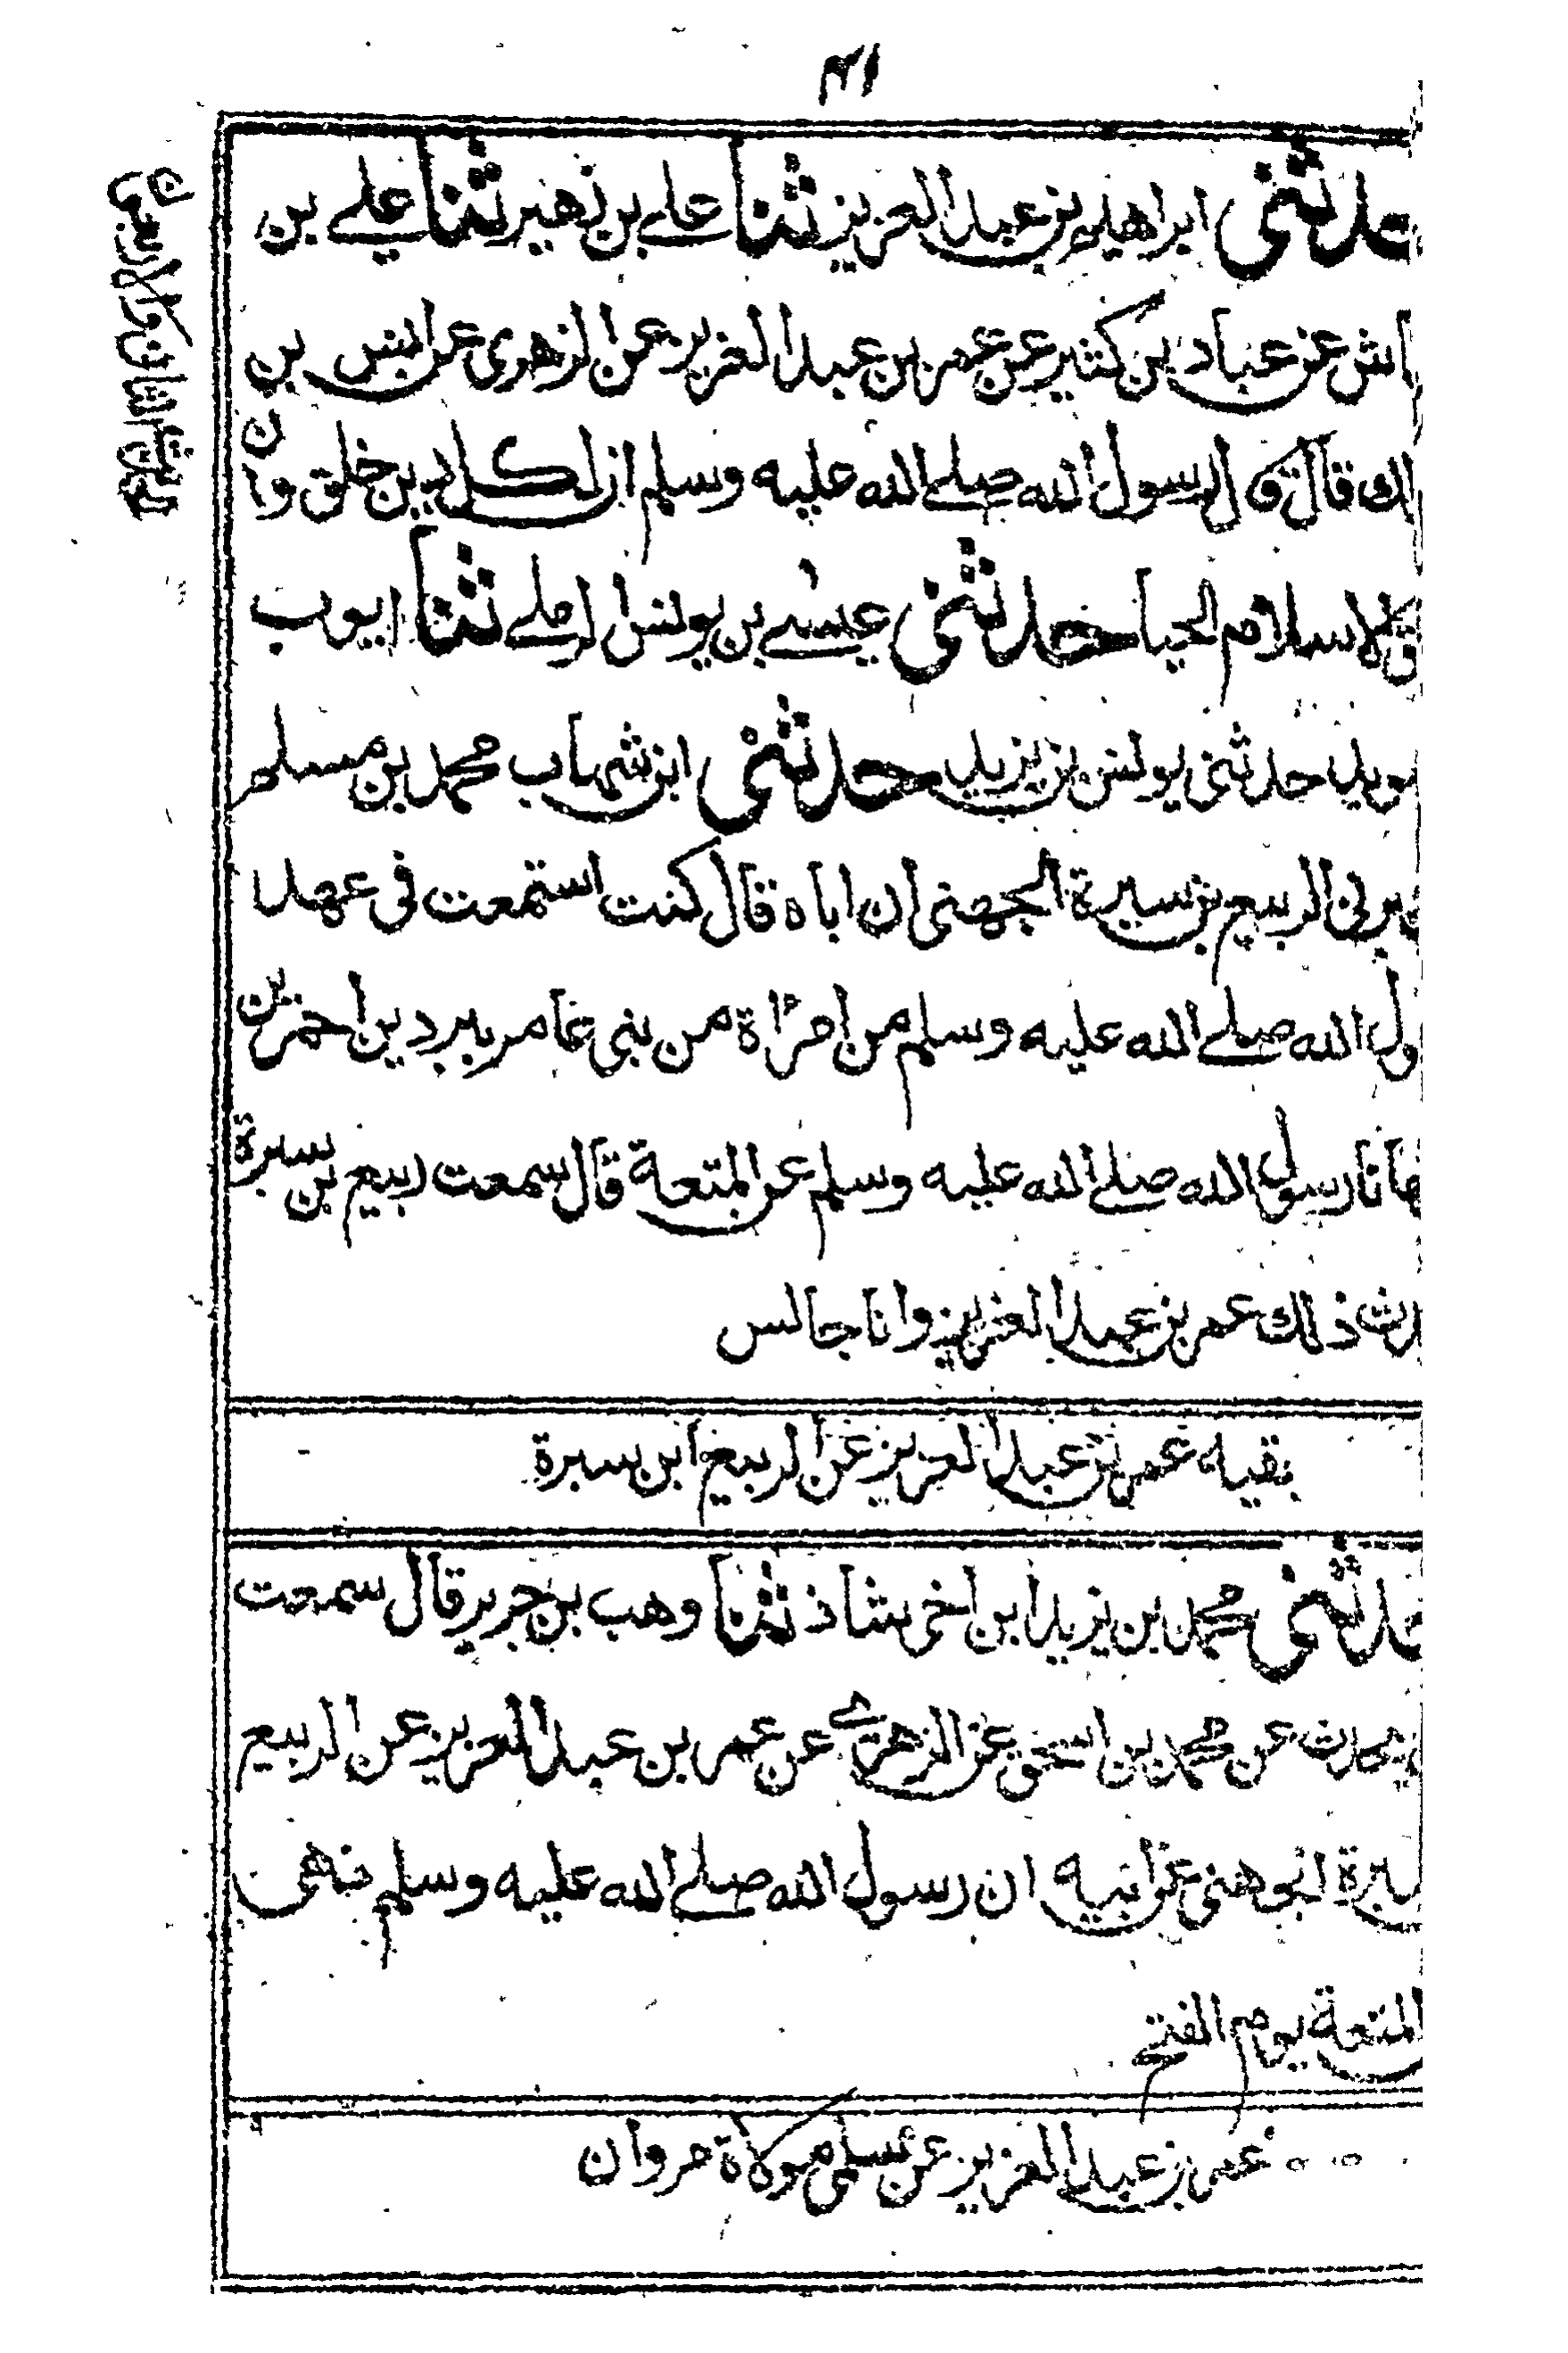 ٣١
حدثنى ابراهيم بن عبد العزيز ثنا على بن زهير ثنا على بن
اش عن عباد بن كثير عن عمر بن عبد العزيز عن الزهرى عن انس بن
لك قال قال رسول الله صلى الله عليه وسلم ان لكل دين خلق وان
ق الاسلام الحيا حدثنى عيسى بن يونس الرملى ثنا ايوب
سويد حدثنى يونس بن يزيد حدثنى ابن شهاب محمد بن مسلم
برنى الربيع بن سبرة الجهنى ان اباه قال كنت استمعت فى عهد
ول الله صلى الله عليه وسلم من امراة من بنى عامر ببردين احمرين
هانا رسول الله صلى الله عليه وسلم عن المتعة قال سمعت ربيع بن سبرة
دث ذلك عمر بن عبد العزيز وانا جالس
بقيه عمر بن عبد العزيز عن الربيع ابن سبرة
حدثنى محمد بن يزيد ابن اخى شاذ ثنا وهب بن جرير قال سمعت
يحدث عن محمد بن اسحق عن الزهرى عن عمر بن عبد العزيز عن الربيع
سبرة الجهنى عن ابيه ان رسول الله صلى الله عليه وسلم نهى
المتعة يوم الفتح
عمر بن عبد العزيز عن سلمى مولاة مروان